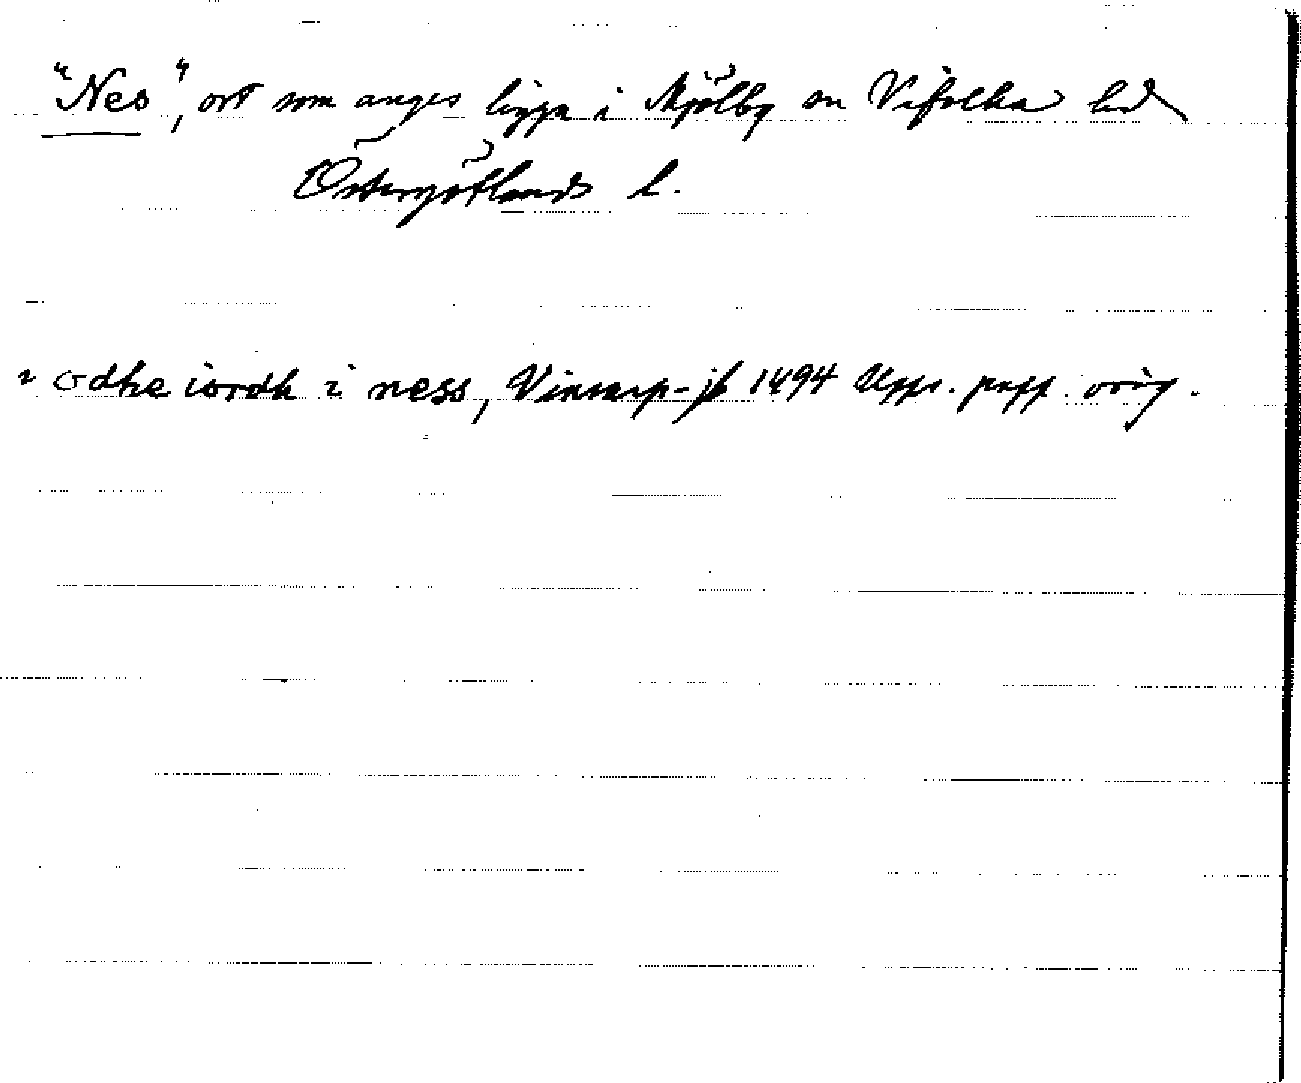 "Nes", ort som anges ligga i Mjölby sn Vifolka hd
Östergötlands l.
odhe iordh i ness, Vinstorp-jb 1494 Upps. papp. orig.